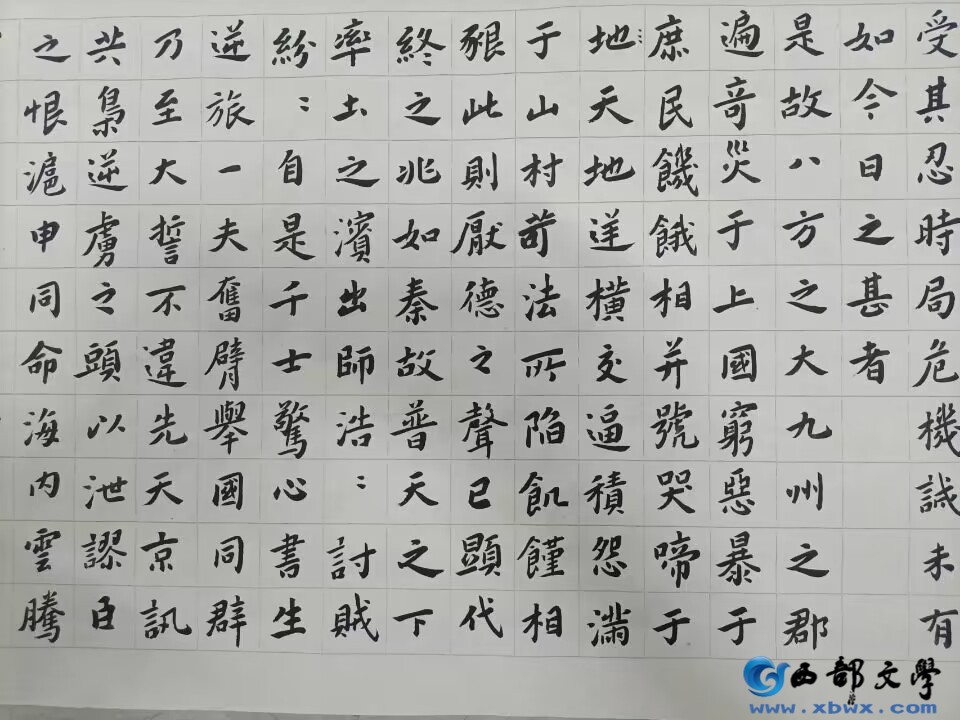 受其忍時局危機誠未有
如今日之甚者
是故八方之大九州之郡
遍奇災于上國窮惡暴于
庶民饑餓相并號哭啼于
地天地逆橫交逼積怨滿
于山村苛法所陷飢饉相
豤此則厭德之聲已顯代
終之兆如秦故普天之下
率土之濱出師浩:討賊
紛:自是千士驚心書生
逆旅一夫奮臂舉國同群
乃至大誓不違先天京訊
共梟逆虜之頭以泄謬臣
之恨滬申同命海内雲騰
西部文學
www.xbwx.com